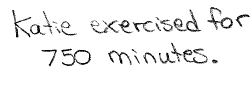 Katie exercised for
750 minutes.